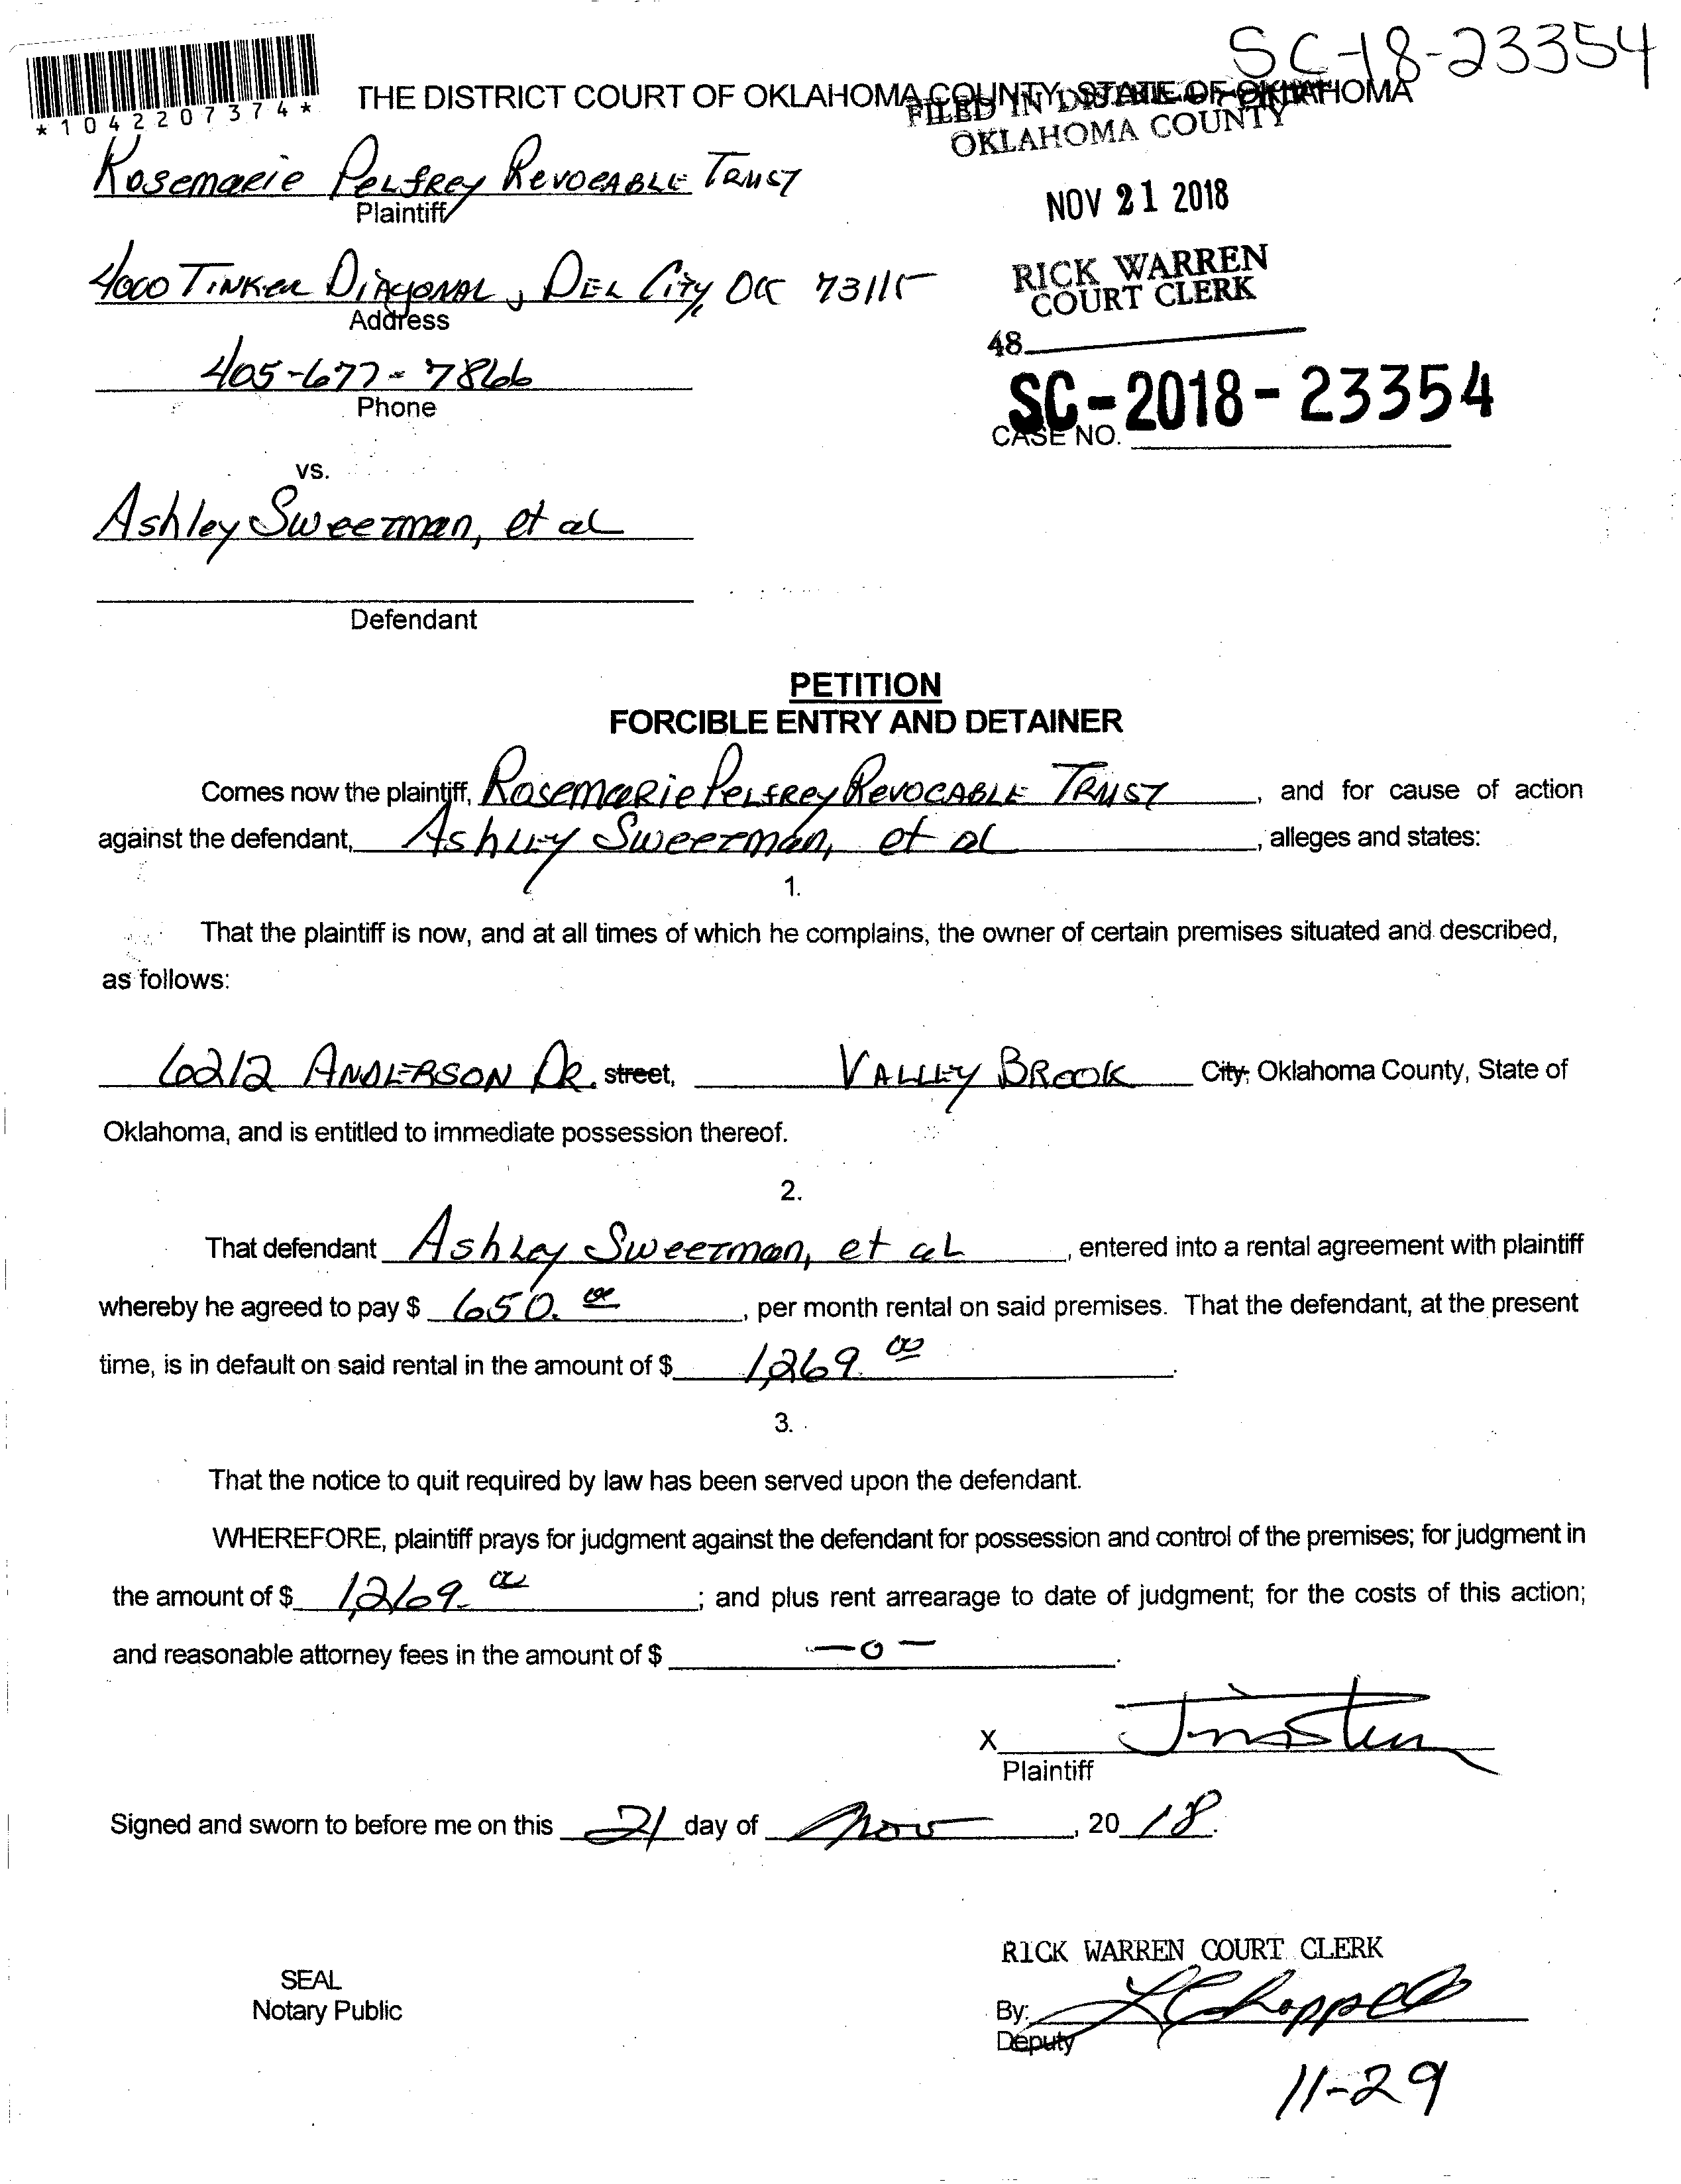 SC-18-23354
*1042207374*
THE DISTRICT COURT OF OKLAHOMA COUNTY, STATE OF OKLAHOMA
FILED IN DISTRICT COURT
OKLAHOMA COUNTY
Rosemarie Pelfrey Revocable Trust
Plaintiff
NOV 21 2018
4000 Tinker Diagonal, Del City, OK 73115
Address
RICK WARREN
COURT CLERK
405-677-7866
Phone
48
SC-2018-23354
CASE NO.
vs.
Ashley Sweetman, et al
Defendant
PETITION
FORCIBLE ENTRY AND DETAINER
Comes now the plaintiff, Rosemarie Pelfrey Revocable Trust, and for cause of action
against the defendant, Ashley Sweetman, et al, alleges and states:
1.
That the plaintiff is now, and at all times of which he complains, the owner of certain premises situated and described,
as follows:
6212 Anderson Dr. street, Valley Brook City, Oklahoma County, State of
Oklahoma, and is entitled to immediate possession thereof.
2.
That defendant Ashley Sweetman, et al, entered into a rental agreement with plaintiff
whereby he agreed to pay $ 650.00, per month rental on said premises. That the defendant, at the present
time, is in default on said rental in the amount of $ 1,269.00.
3.
That the notice to quit required by law has been served upon the defendant.
WHEREFORE, plaintiff prays for judgment against the defendant for possession and control of the premises; for judgment in
the amount of $ 1,269.00; and plus rent arrearage to date of judgment; for the costs of this action;
and reasonable attorney fees in the amount of $ -0-.
X
Plaintiff
Signed and sworn to before me on this 21 day of Nov, 20 18.
RICK WARREN COURT CLERK
SEAL
Notary Public
By:
Deputy
11-29